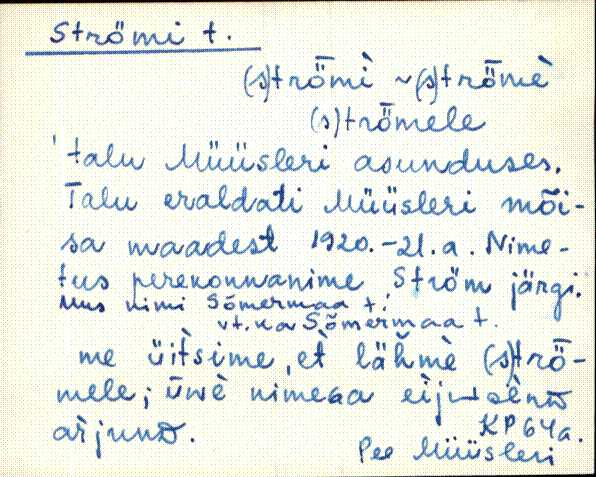 Strömi t.
(s)trȫmì ~ (s)trȫmè
(s)trȫmele
talu Müüsleri asunduses.
Talu eraldati Müüsleri mõi-
sa maadest 1920.-21.a. Nime-
tus perekonnanime Ström järgi.
Uus nimi Sõmermaa t.
vt. ka Sõmermaa t.
me üìtsime, et̀ läh̆mè (s)trȫ-
mele; ūwè nimega
àrjunᴅ.
KP 64a.
Pee Müüsleri